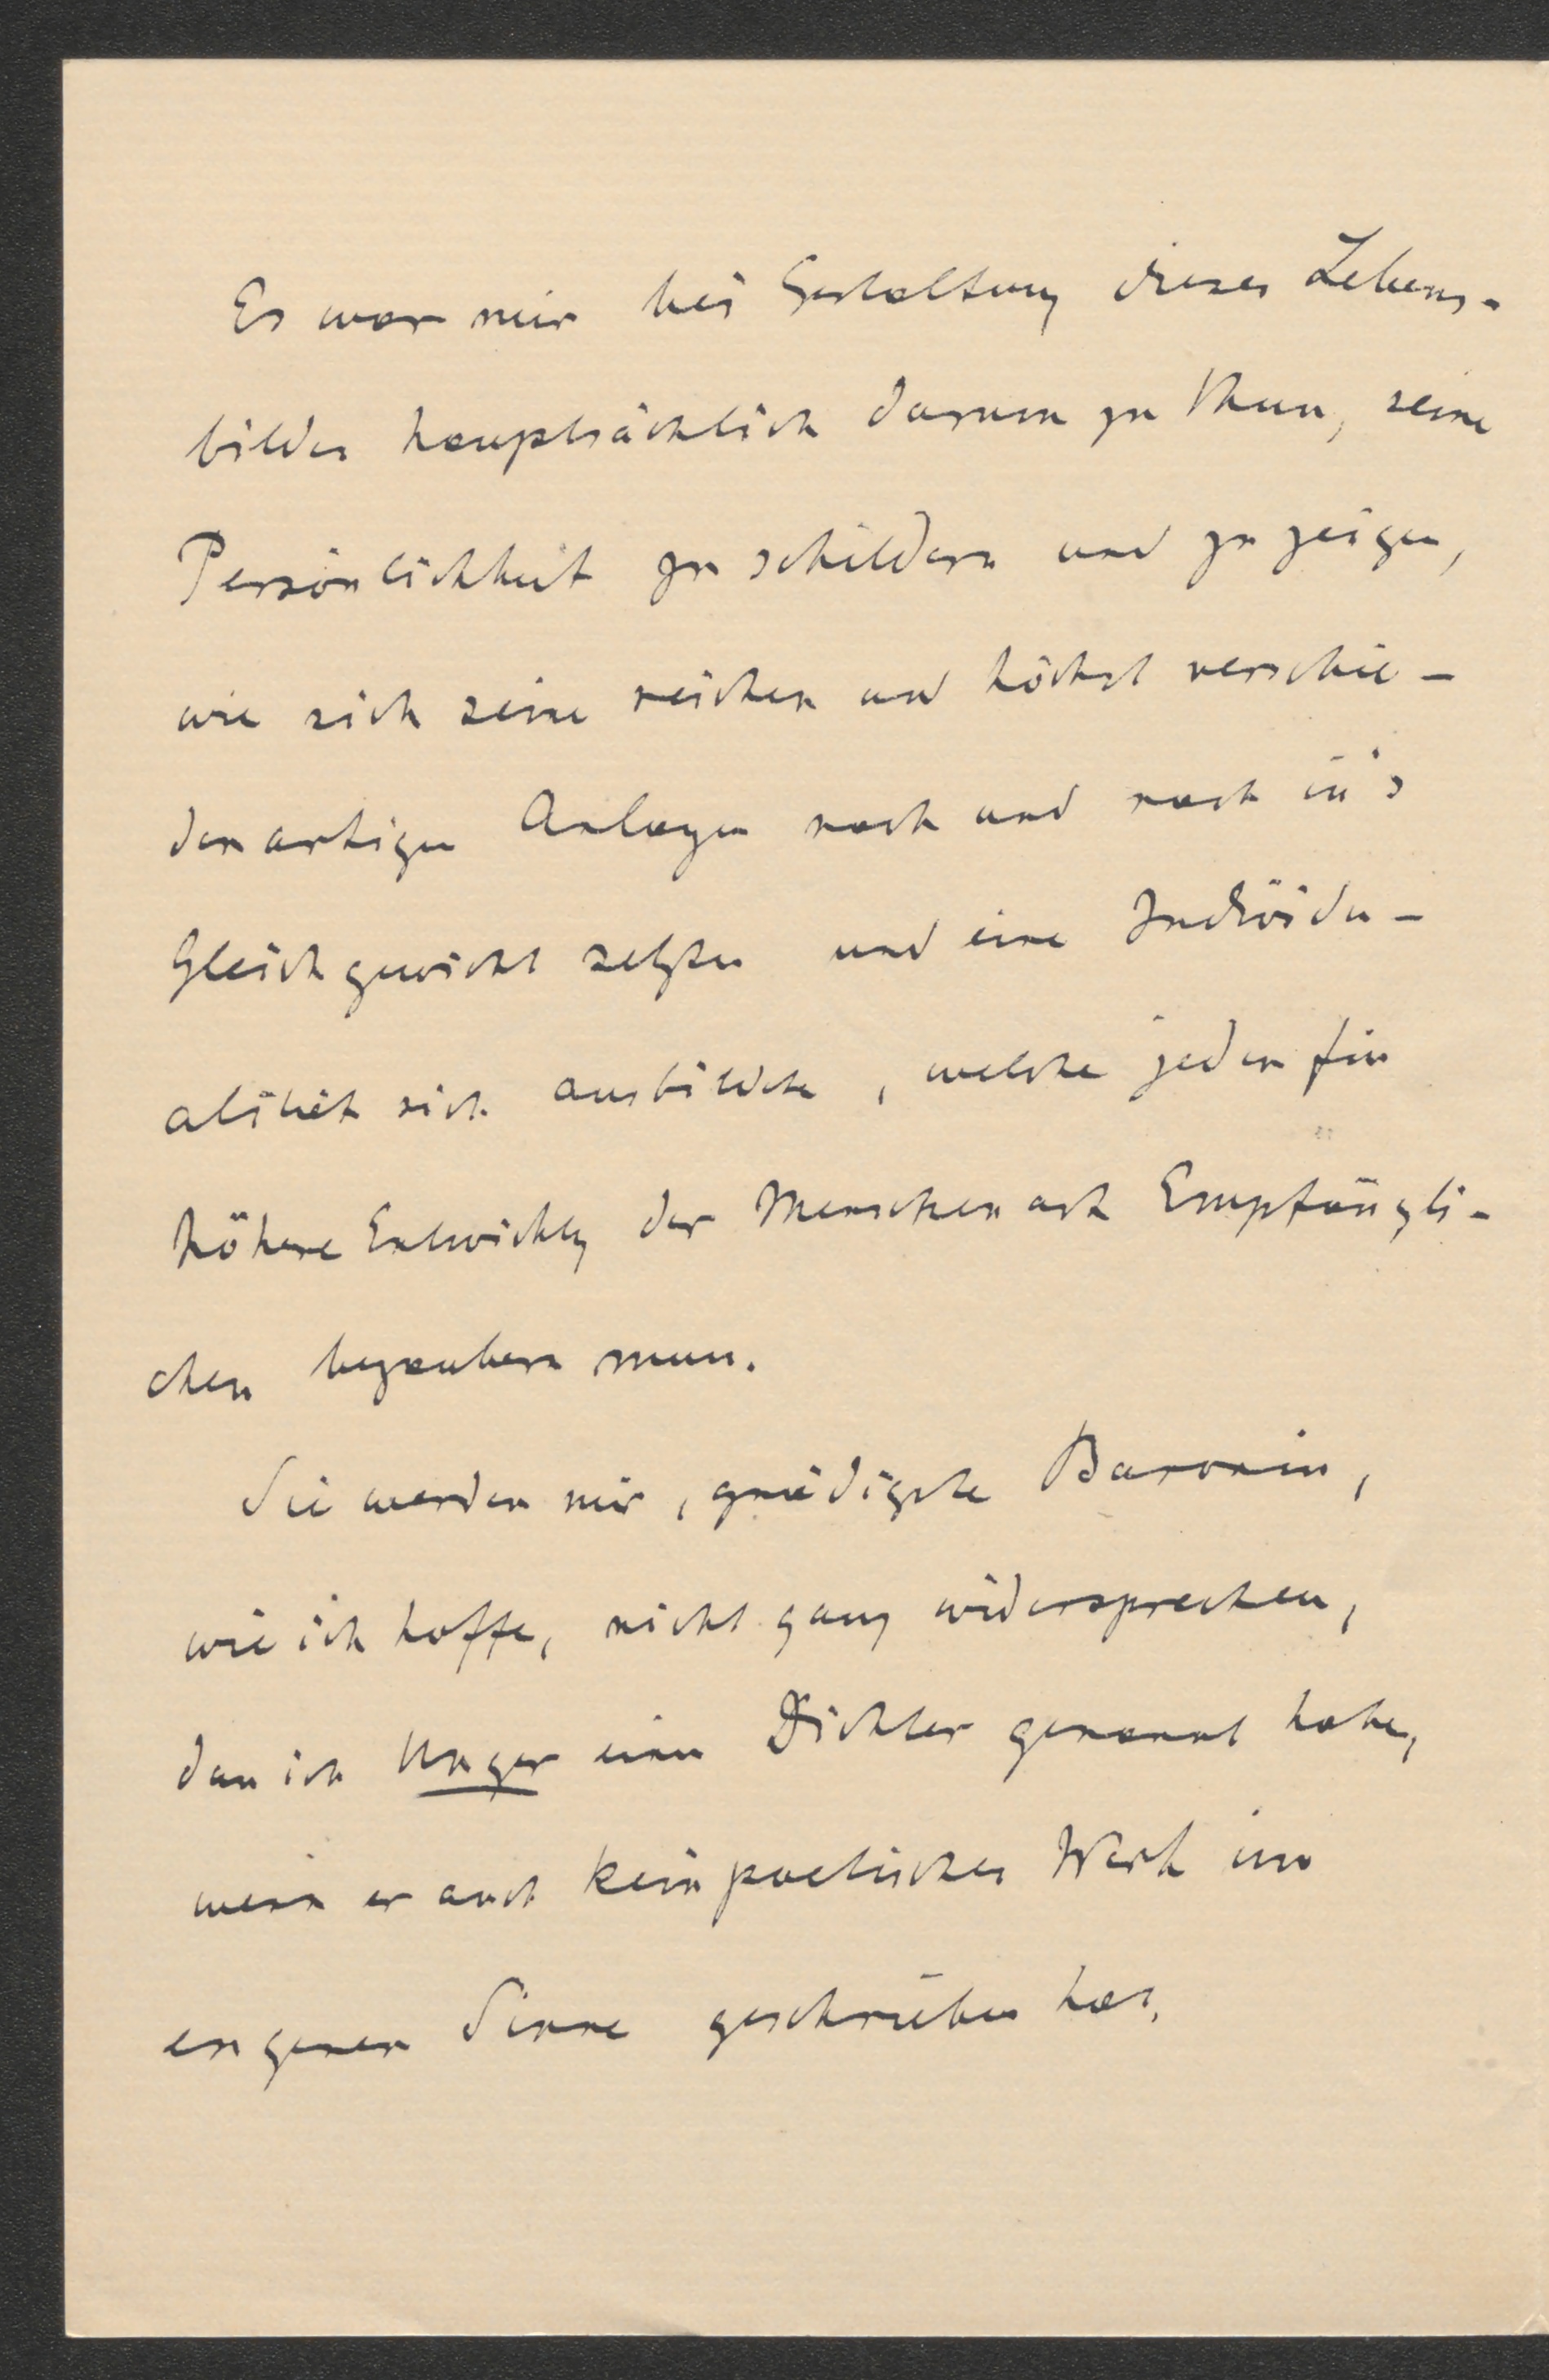 Es war mir bei Gestaltung dieses Lebens-
bildes hauptsächlich darum zu thun, seine
Persönlichkeit zu schildern und zu zeigen,
wie sich seine reichen und höchst verschie-
denartigen Anlagen nach und nach in's
Gleichgewicht setzten und eine Individu-
alität sich ausbildete, welche jeden für
höhere Entwicklg der Menschenart Empfängli-
chen bezaubern muss.
Sie werden mir, gnädigste Baronin,
wie ich hoffe, nicht ganz widersprechen,
dass ich Unger einen Dichter genannt habe,
wenn er auch kein poetisches Werk im
engeren Sinne geschrieben hat.